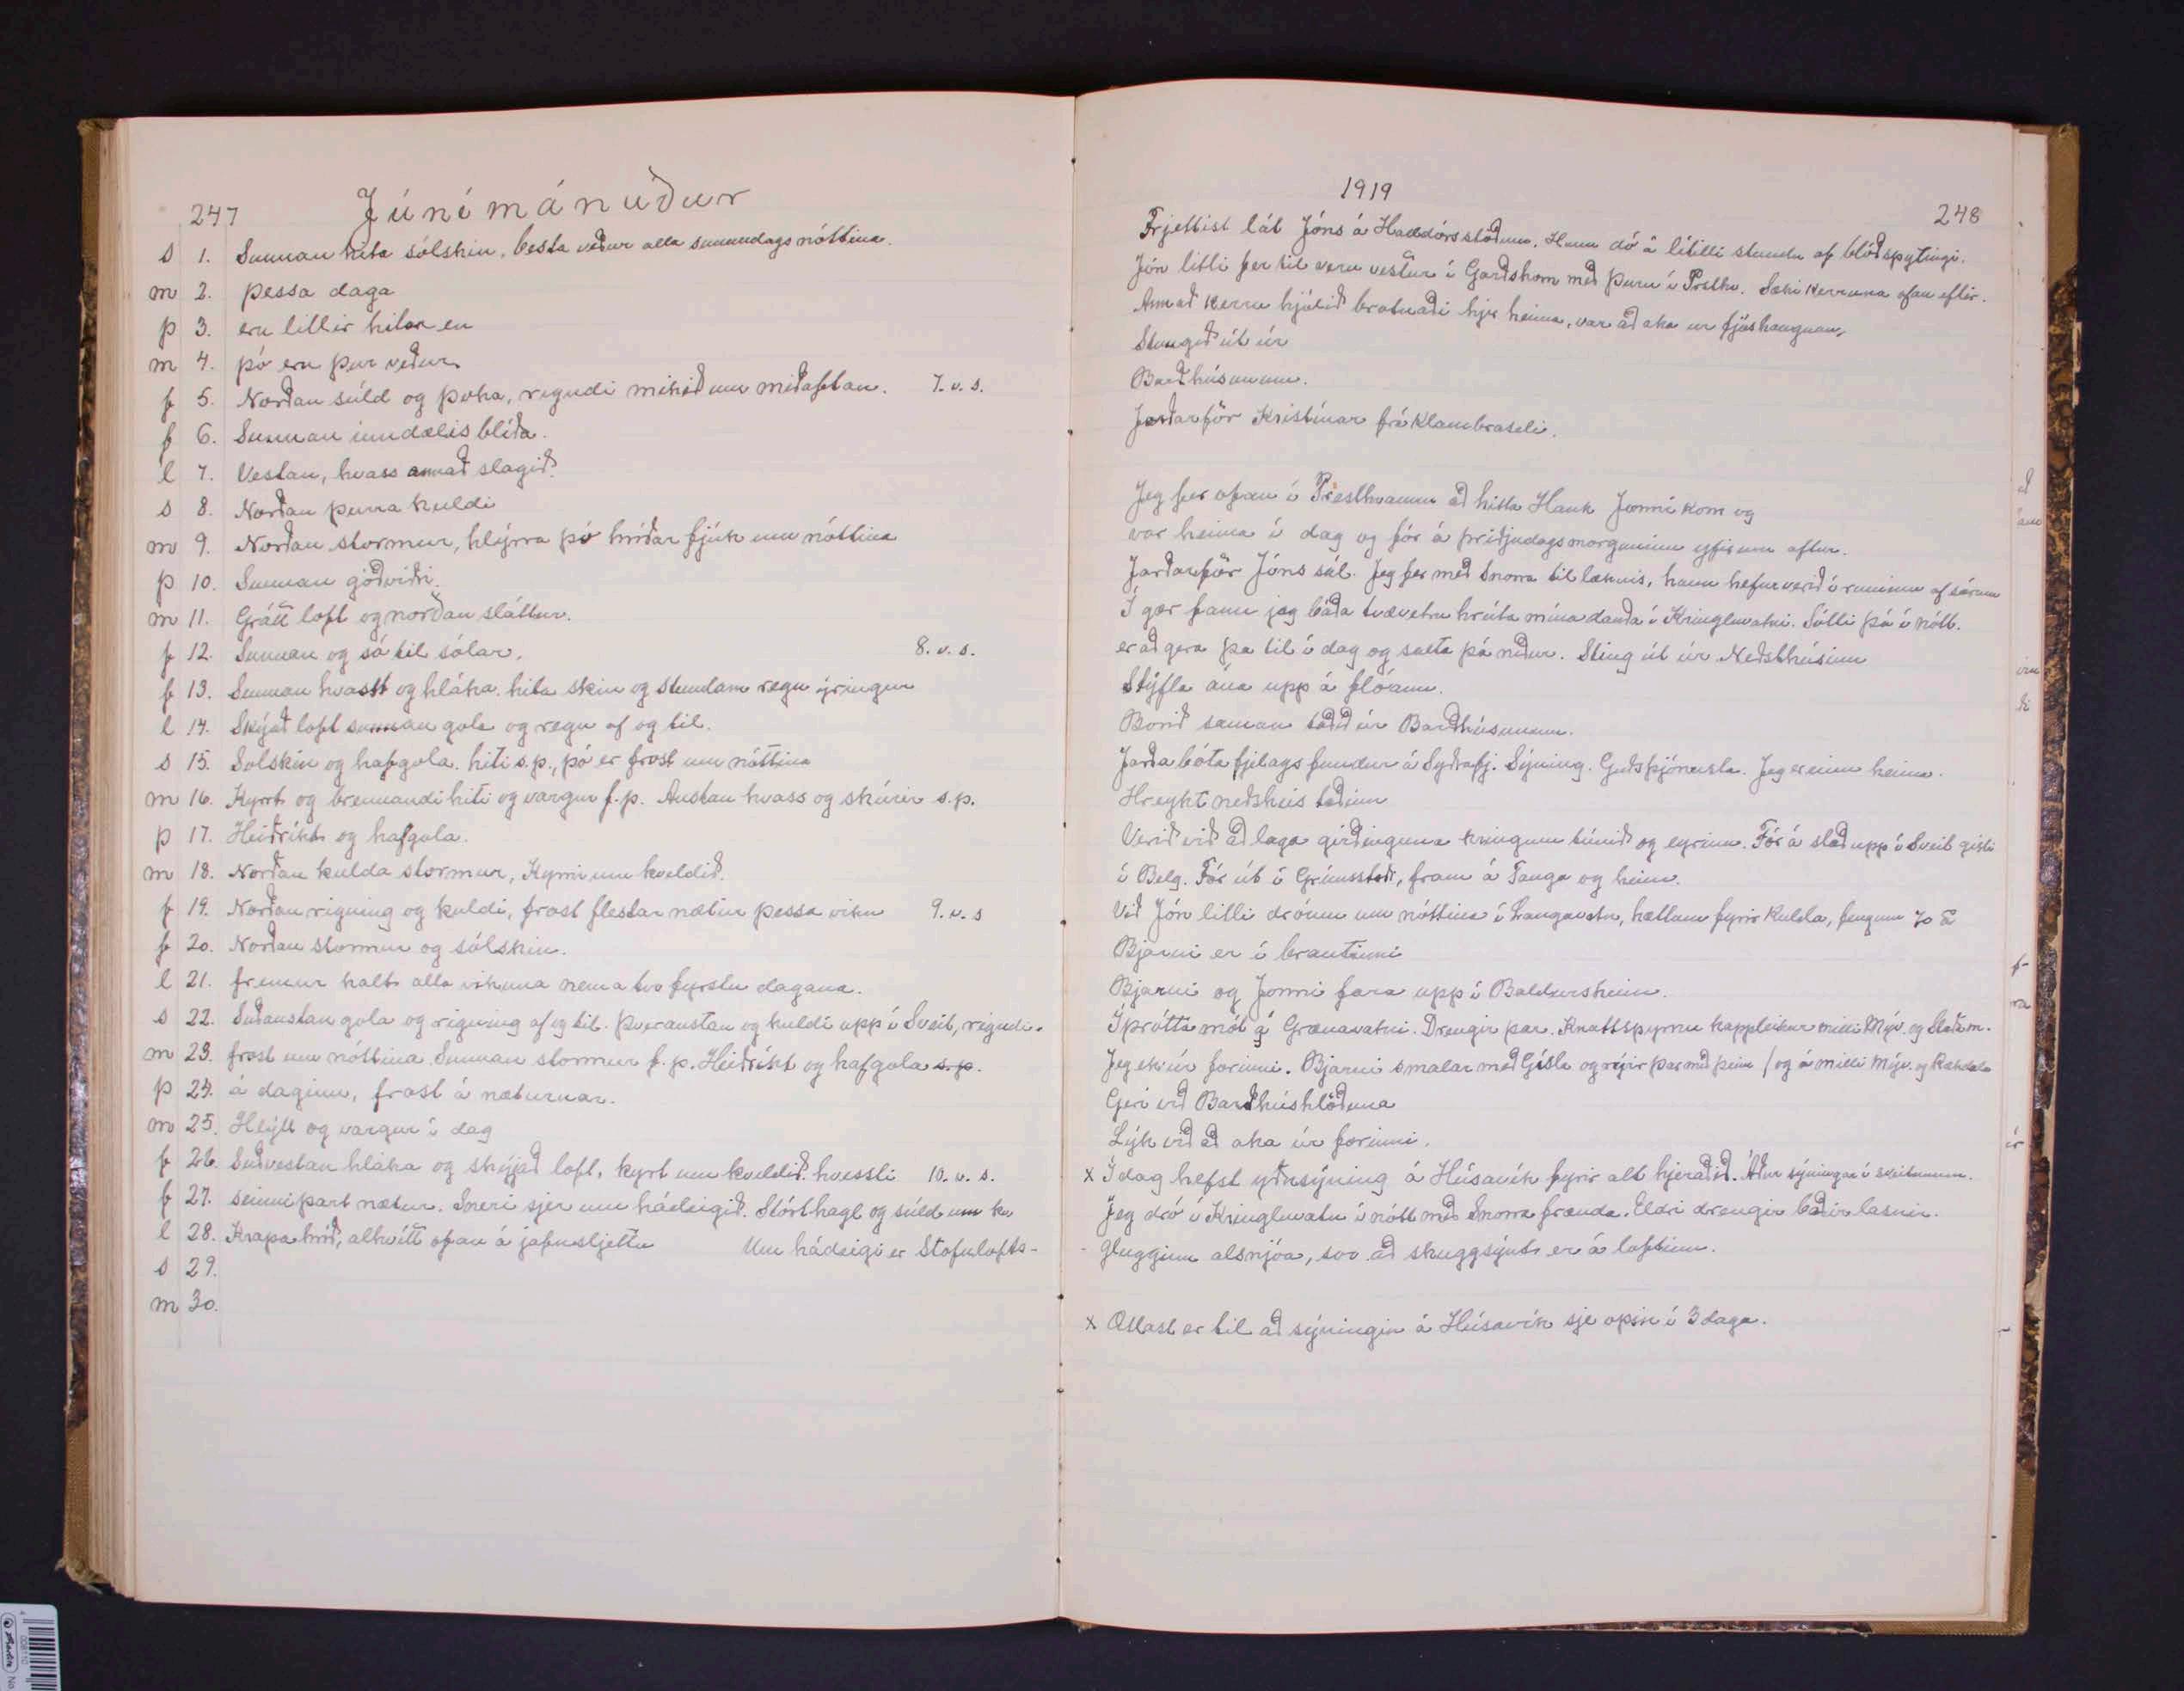 247 Júnímánuður
s 1. Sunnan hita sólskin, besta veður alla sunnudagsnóttina.
m 2. þessa daga
þ 3. eru litlir hitar en
m 4. þó eru þur veður
f 5. Norðan súld og þoka, rigndi mikið um miðaftan. 7. v. s.
f 6. Sunnan inndælis blíða.
l 7. Vestan, hvass annað slagið.
s 8. Norðan þurra kuldi
m 9. Norðan stormur, hlýrra þó hríðar fjúk um nóttina
þ 10. Sunnan góðviðri.
m 11. Grátt loft og norðan sláttur.
f 12. Sunnan og sá til sólar. 8. v. s.
f 13. Sunnan hvasst og hláka. hita skin og stundam regn ýringur
l 14. Skýað loft sunnan gola og regn af og til.
s 15. Solskin og hafgola. hiti s.p., þó er frost um nóttina
m 16. Kyrrt og brennandi hiti og vargur f.p. Austan hvass og skúrir s.p.
þ 17. Heiðríkt og hafgola.
m 18. Norðan kulda stormur, Kyrri um kveldið.
f 19. Norðan rigning og kuldi, frost flestar nætur þessa viku 9. v. s
f 20. Norðan stormur og sólskin.
l 21. fremur kalt alla vikuna nema tvo fyrstu dagana.
s 22. Suðaustan gola og rigning af og til. Þveraustan og kuldi upp í Sveit, rigndi.
m 23. frost um nóttina. Sunnan stormur f.p. Heiðríkt og hafgola s.p.
þ 24. á daginn, frost á næturnar.
m 25. Hlýtt og vargur í dag
f 26. Suðvestan hláka og skýjað loft, kyrt um kveldið. hvessti 10. v. s.
f 27. seinnipart nætur. Sneri sjer um hádeigið. Stórt hagl og súld um kv
l 28. Krapa hríð, alhvítt ofan á jafnsljettu Um hádeigi er Stofulofts-
s 29.
m 30.
1919
248
Frjettist lát Jóns á Halldórsstöðum. Hann dó á lítilli stundu af blóðspýtingi.
Jón litli fer til veru vestur í Garðshorn með Þuru í Presthv. Sæki kerruna ofan eftir.
Annað kerru hjólið brotnaði hjer heima, var að aka úr fjóshaugnum,
Stungið út úr
Barðhúsunum.
Jarðarför Kristínar frá Klambraseli.
Jeg fer ofan í Presthvamm að hitta Hauk Jonni kom og
var heima í dag og fór á þriðjudagsmorguninn yfirum aftur.
Jarðarför Jóns sál. Jeg fer með Snorra til læknis, hann hefur verið í rúminu af sárum
Í gær fann jeg báða tvævetru hrúta mína dauða í Kringluvatni. Sótti þá í nótt.
er að gera þa til í dag og salta þá niður. Sting út úr Neðsthúsinu
Stýfla ána upp á flóann.
Borið saman taðið úr Barðhúsunum.
Jarðabóta fjelags fundur á Syðrafj. Sýning. Guðsþjónusta. Jeg er einn heima.
Hreykt neðshús taðinu
Verið við að laga girðinguna kringum túnið og eyrina. Fór á stað upp í Sveit gisti
í Belg. Fór út í Grímsstaði, fram á Tanga og heim.
Við Jón litli drógum um nóttina í Langavatn, hættum fyrir kulda, fengum 70 
Bjarni er í brautinni
Bjarni og Jonni fara upp í Baldursheim.
Íþrótta mót á Grænavatni. Drengir þar. Knattspyrnu kappleikur milli Mýv. og Staðm.
Jeg ek úr forinni. Bjarni smalar með Gísla og rýir þar með þeim / og á milli Mýv. og Reykdæla
Geri við Barðhúshlöðuna
Lýk við að aka úr forinni.
x Í dag hefst yðnsýning á Húsavík fyrir alt hjeraðið. Áður sýningar í sveitunum.
Jeg dró í Kringluvatn í nótt með Snorra frænda. Eldri drengir báðir lasnir.
- glugginn alsnjóa, svo að skuggsýnt er á loftinu.
x Ætlast er til að sýningin á Húsavík sje opin í 3 daga.